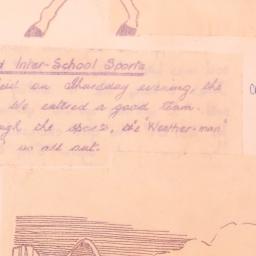 d Inter-School Sports
held on Thursday evening, the
We entered a good team.
ough the sports, the "Weather-man"
us all out.